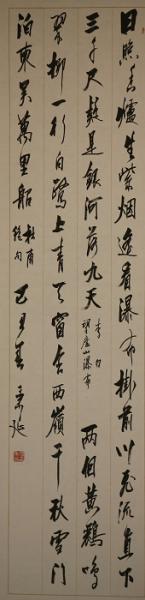 日照香爐生紫烟遙看瀑布掛前川飛流直下
三千尺疑是銀河落九天 李白 望廬山瀑布 兩個黃鸝鳴
翠柳一行白鷺上青天窗含西嶺千秋雪門
泊東吳萬里船 杜甫 絕句 己丑春